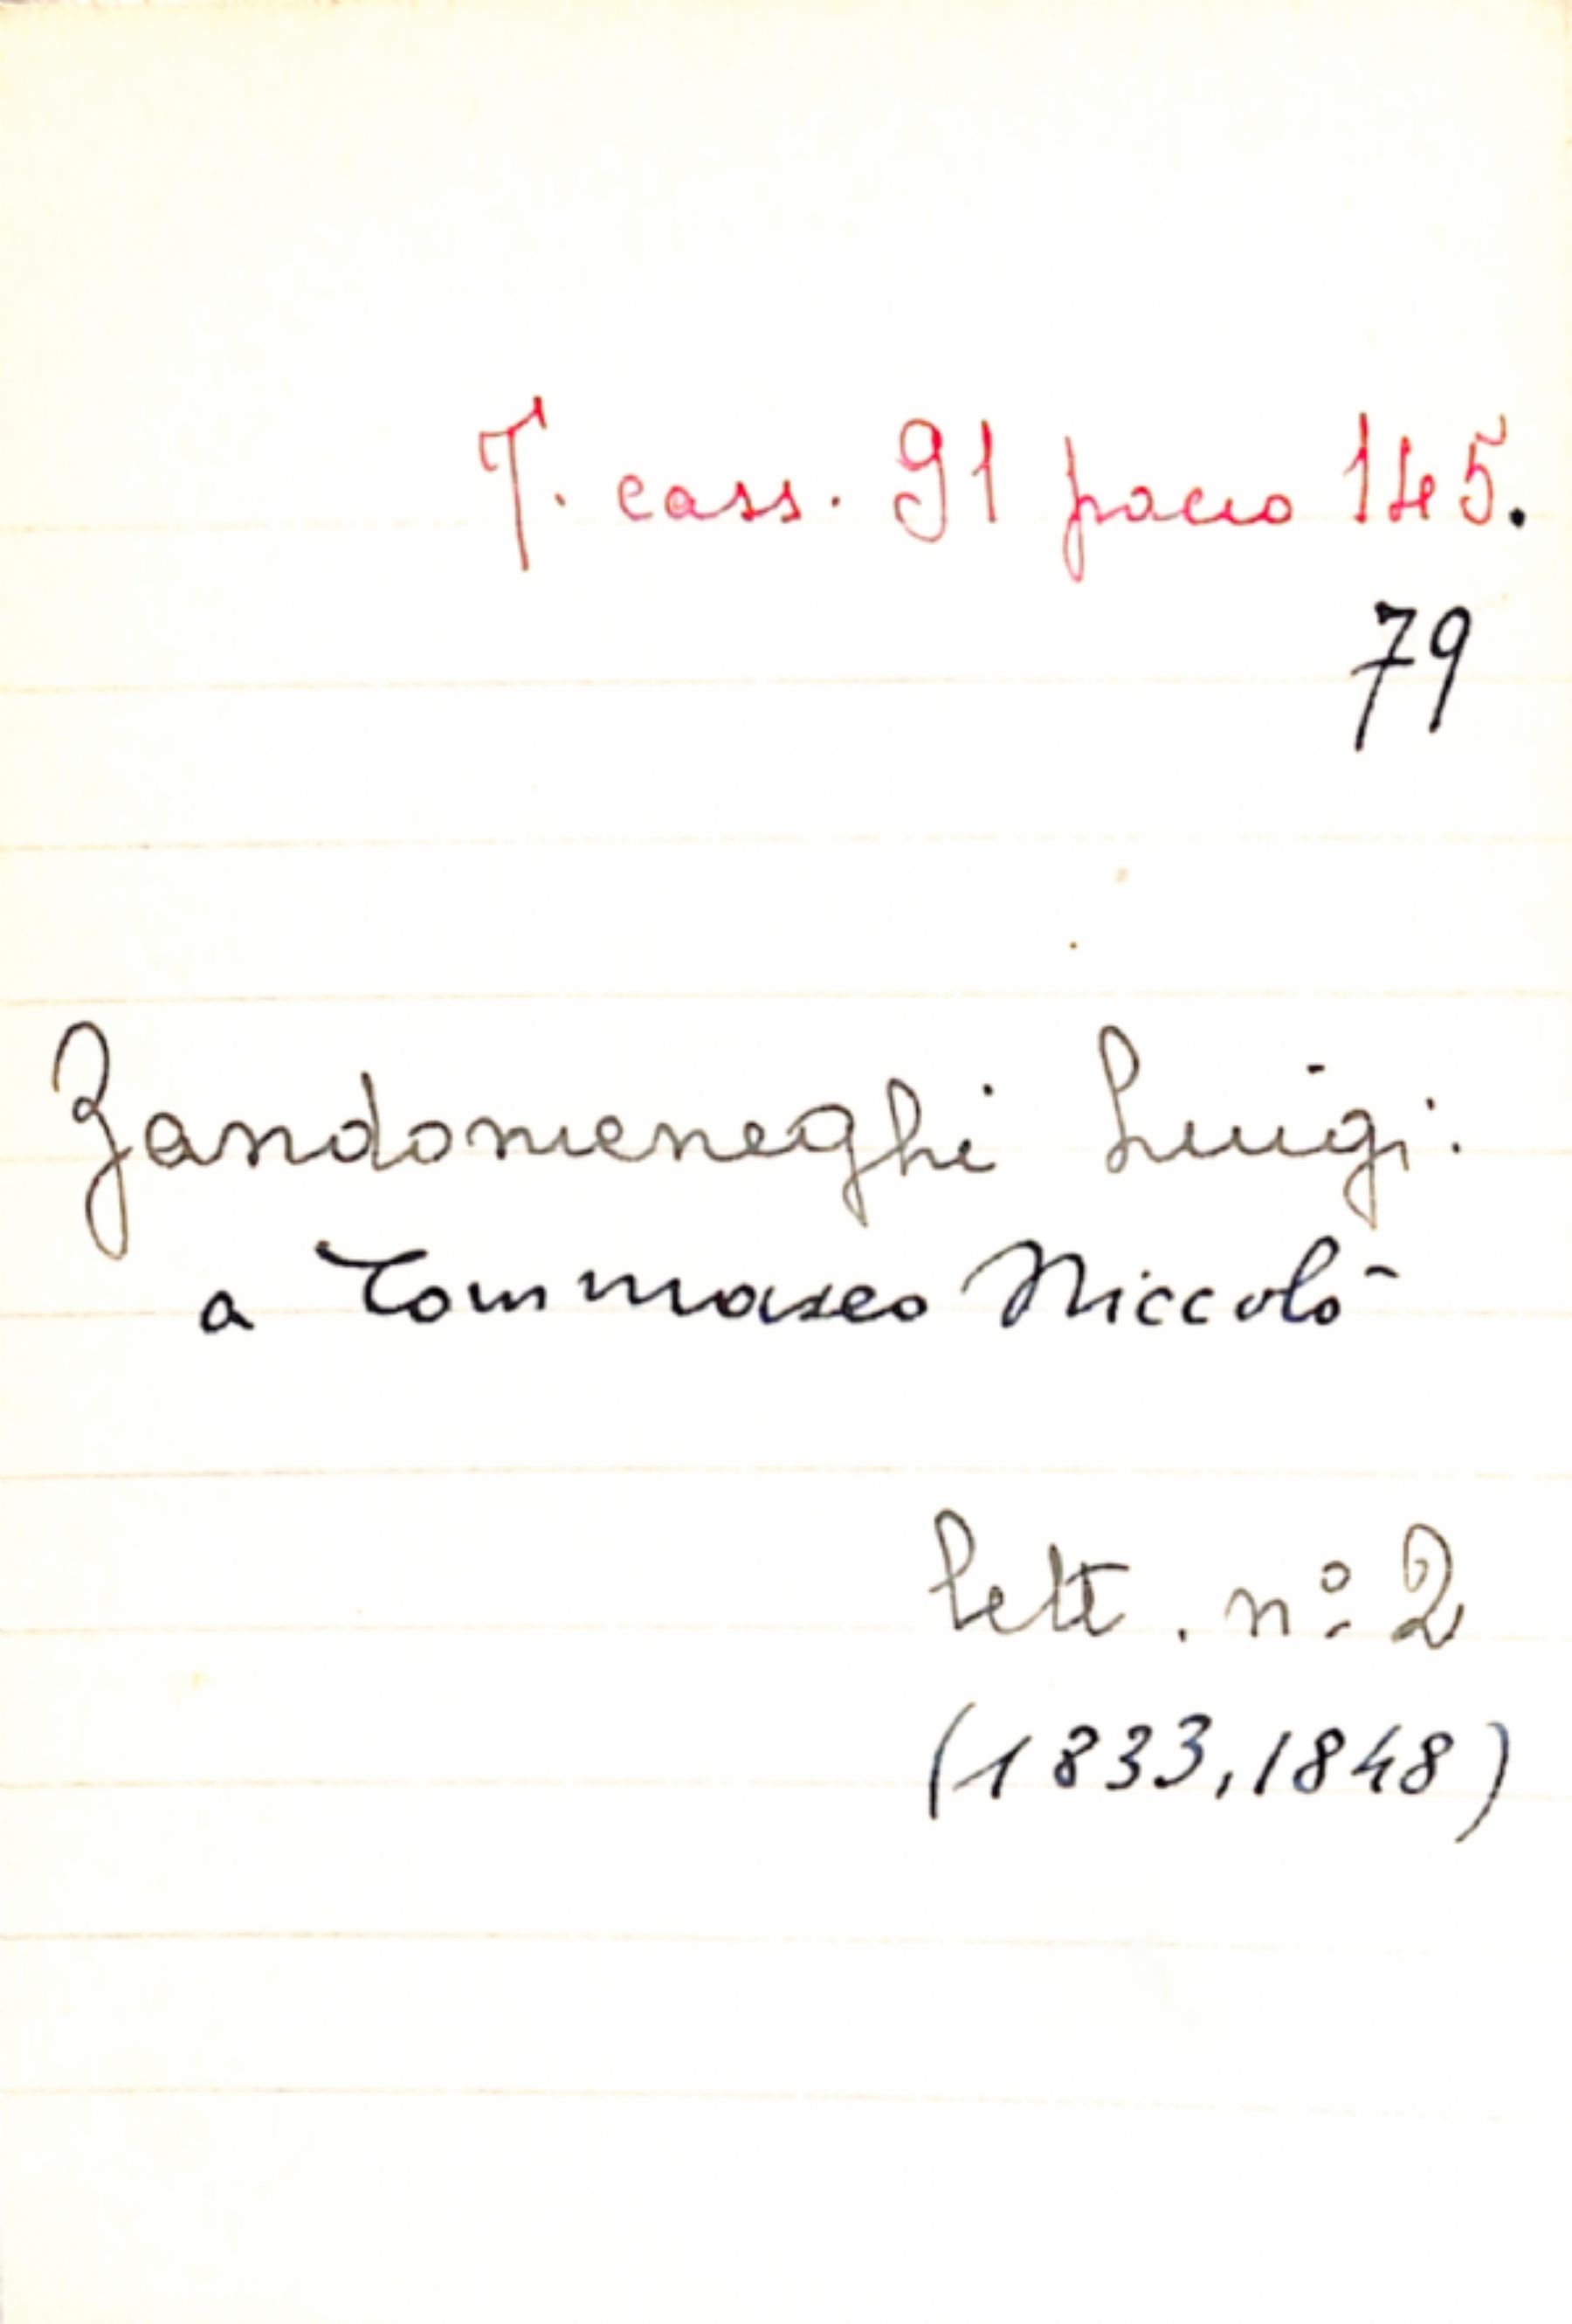 T. cass. 91 pacco 145.
79
Zandomeneghi Luigi.
a Tommaseo Niccolò
Lett. nº 2
(1833, 1848)